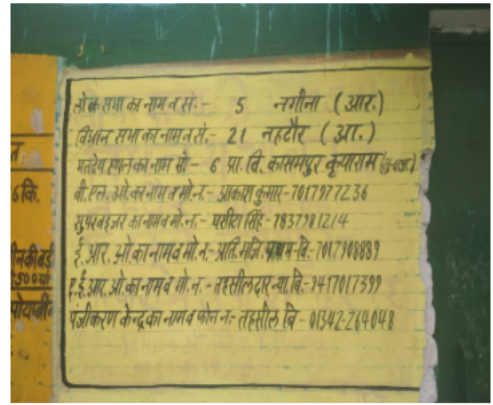 लोक सभा का नाम व सं.- 5 नगीना (आर.)
विधान सभा का नाम व सं.- 21 नहटौर (आ.)
मतदेय स्थल का नाम सं- 6 प्रा. वि. कासमपुर कृपाराम
बी. एल. ओ. का नाम व मो. न.- आकाश कुमार- 7017977236
सुपरवाइजर का नाम व मो. न.- घसीटा सिंह- 7837981214
ई. आर. ओ. का नाम व मो. न.- अति. मजि. प्रथम- बि- 7017908889
ए. ई. आर. ओ. का नाम व मो. न.- तहसीलदार न्या. बि.- 9417017399
पंजीकरण केन्द्र का नाम व फोन न.- तहसील बि- 01342-264048
6 कि.